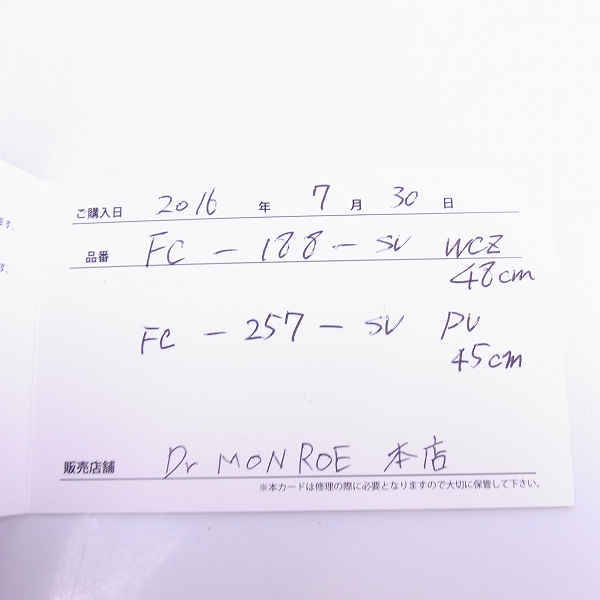 ご購入日 2016 年 7 月 30 日
品番 FC - 188 - SV WCZ
48cm
FC - 257 - SV PU
45cm
販売店舗 Dr MONROE 本店
※本カードは修理の際に必要となりますので大切に保管して下さい。